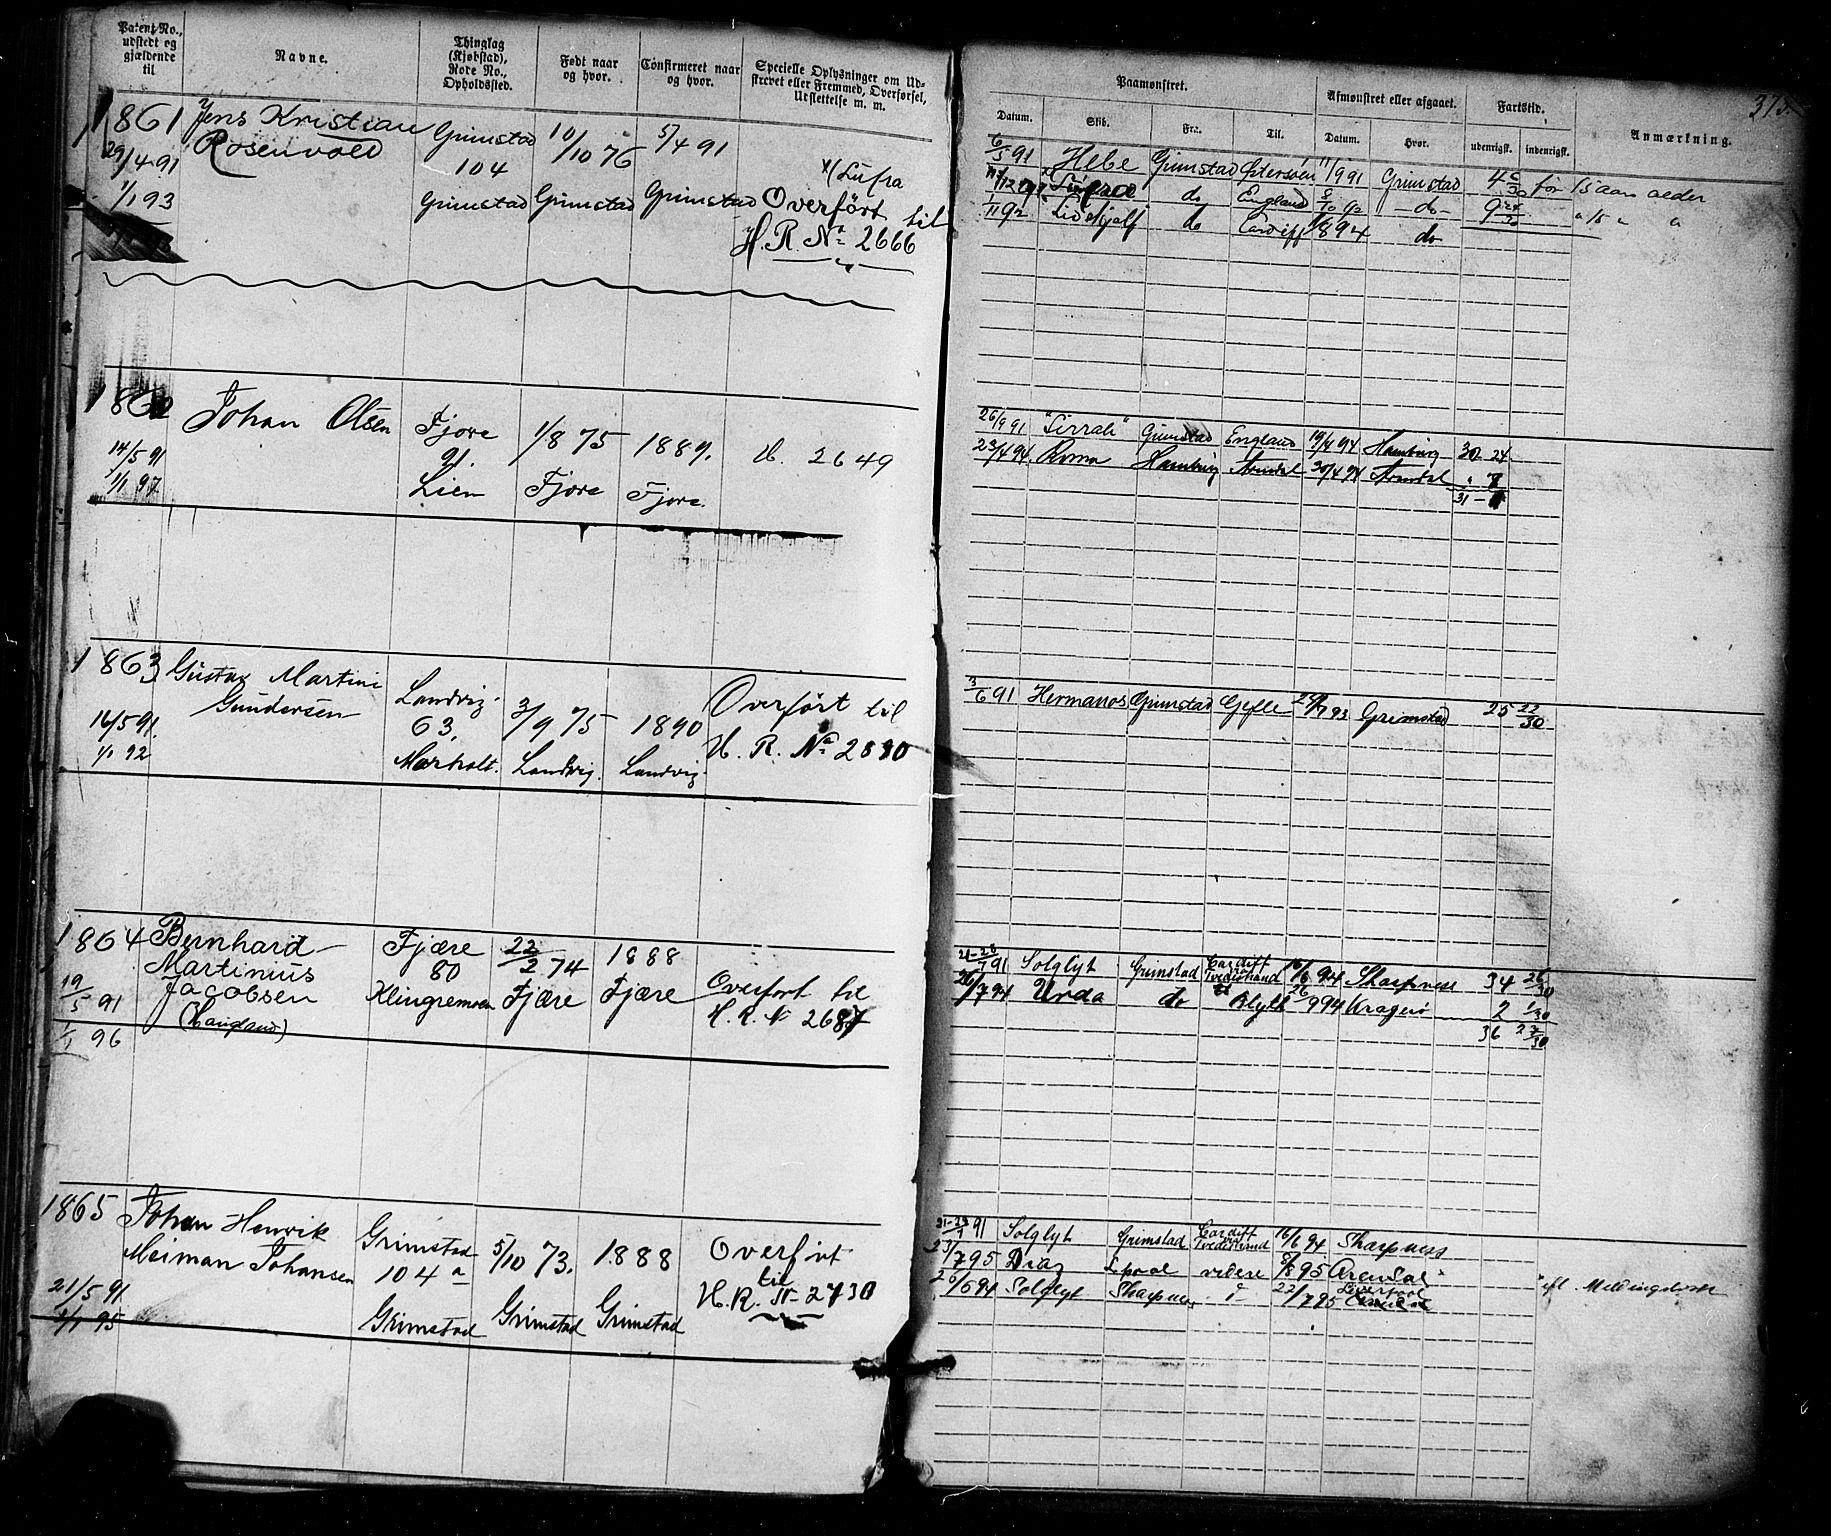 Patent No., udstedt og gjældende til
Navne.
Thinglag (Kjøbstad), Rode No., Opholdssted.
Født naar og hvor.
Confirmeret naar og hvor.
Specielle Oplysninger om Udstrevet eller Fremmed, Overførsel, Udslettelse m. m.
Paamønstret.
Afmønstret eller afgaaet.
Fartstid.
Anmærkning.
Datum. Skib. Fra. Til. Datum. Hvor. udenrigsk. indenrigsk.
1861 Jens Kristian Grimstad 10/10 76 5/4 91
Rosenvold 104
29/4 91
1/1 93 Grimstad Grimstad Grimstad Overført til
H. R. No 2666
6/5 91 Hebe Grimstad Østersøen 11/9 91 Grimstad 4 6/30 før 15 aars alder
do England do
1/11 92 Lidskjalf do Cardiff do
1862 Johan Olsen Fjære 1/8 75 1889. H. 2649
14/5 91 91.
1/1 97 Lien Fjære Fjære.
26/9 91 "Sirrah" Grimstad England 19/4 94 Hamburg 30 24
23/4 94. Roma Hamburg Arendal 30/4 94 Arendal " 7
1863 Gustav Martini Landvig
Gundersen 63. 3/9 75 1890 Overført til
16/5 91.
1/1 92 Mørholt. Landvig. Landvig. H. R. No
3/6 91 Hermanos Grimstad Gefle Grimstad 25 22/30
1864 Bernhard Fjære 22/2 74 1888
Martinius 80
19/5 91 Jacobsen Klingremoen Fjære Fjære Overført til
(Langland) H. R. N 2687
1/1 96
21-28/7 91 Solglyt Grimstad Cardiff Tvedestrand 16/6 94 Sharpness 34 26/30
26/7 94 Urda do Blyth 26/9 94 Kragerø 2 1/30
36 27/30
1865 Johan Henrik Grimstad 5/10 73. 1888 Overført
Meiman Johansen 104 a til
21/5 91 H. R. N 2730
1/1 95 Grimstad Grimstad Grimstad
21-28/7 91 Solglyt Grimstad Cardiff Tvedestrand 16/6 94 Sharpness
23/7 95 Diaz Lpool videre 6/8 95 Arendal
Solglyt Sharpness 22/7 95 Liverpool